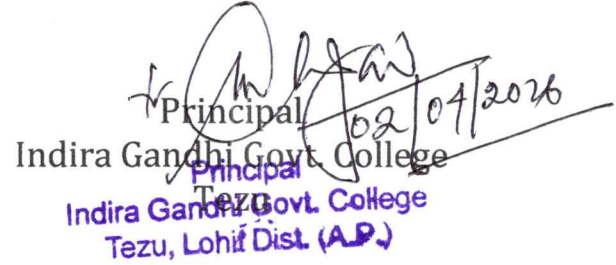 Principal
02/04/2026
Indira Gandhi Govt. College
Tezu
Principal
Indira Gandhi Govt. College
Tezu, Lohit Dist. (A.P.)